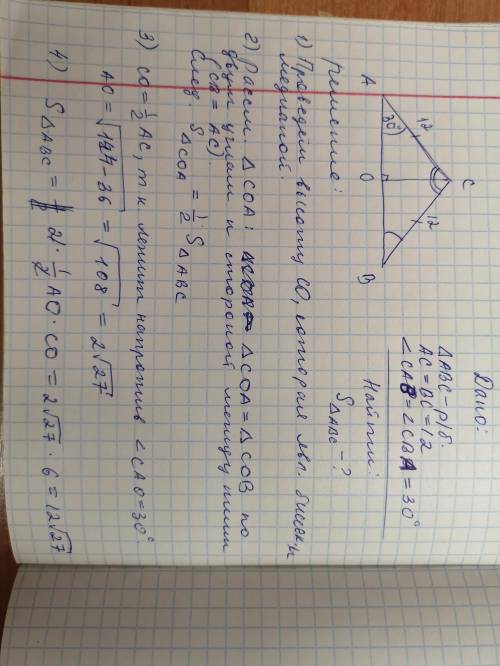 Дано:
ΔABC - р/б.
AC = BC = 12
∠CAB = ∠CBA = 30°
Найти:
S ΔABC - ?
C
12
12
30°
A
O
B
Решение:
1) Проведём высоту CO, которая явл. биссек. и
медианой.
2) Рассм. ΔCOA: ΔCOA = ΔCOB по
двум углам и стороной между ними
(CB = AC)
След. S ΔCOA = 1/2 S ΔABC
3) CO = 1/2 AC, т.к. лежит напротив ∠CAO = 30°
AO = √144-36 = √108 = 2√27
4) S ΔABC = 2 · 1/2 AO · CO = 2√27 · 6 = 12√27